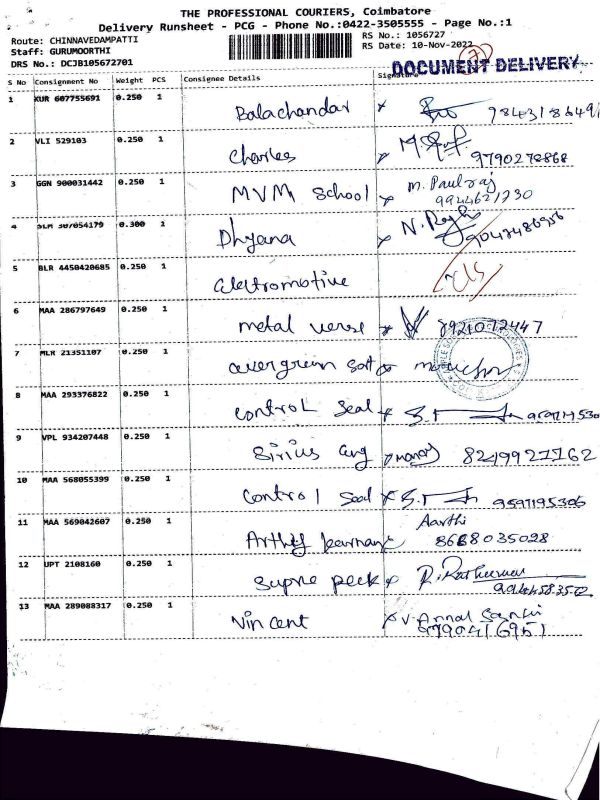 THE PROFESSIONAL COURIERS, Coimbatore
Delivery Runsheet - PCG - Phone No.:0422-3505555 - Page No.:1
Route: CHINNAVEDAMPATTI
RS No.: 1056727
Staff: GURUMOORTHI
RS Date: 10-Nov-2022
DRS No.: DCJB105672701
DOCUMENT DELIVERY
S No Consignment No Weight PCS Consignee Details Signature
1 KUR 607755691 0.250 1 Balachandar
2 VLI 529103 0.250 1 Charles 9790270868
3 GGN 900031442 0.250 1 MVM School M. Paulraj
9944621230
4 SLM 307054179 0.300 1 Dhyana N.
5 BLR 4450420685 0.250 1
6 MAA 286797649 0.250 1 metal verse 8921072447
7 MLR 21351107 0.250 1 evergreen
8 MAA 293376822 0.250 1 Control Seal
9 VPL 934207448 0.250 1 Sirius 8249927162
10 MAA 568055399 0.250 1 Control Seal 9597195306
11 MAA 569042607 0.250 1 Aarthi
8668035028
12 UPT 2108160 0.250 1
13 MAA 289088317 0.250 1 Vincent